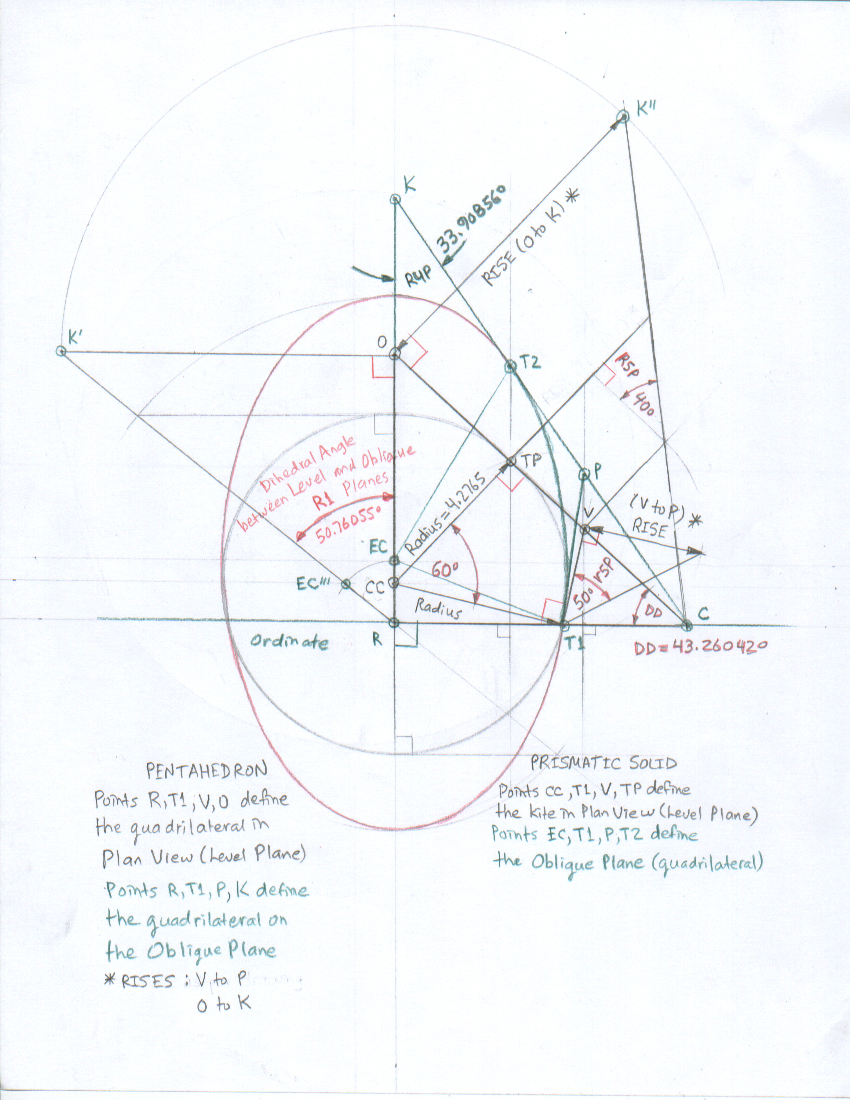 K"
K
33.90856°
RISE (O to K) *
R4P
K'
O
T2
R5P
40°
Dihedral Angle
between Level and Oblique
Planes
R1
50.76055°
TP
P
Radius = 4.2765
V
(V to P) *
RISE
EC
EC"'
CC
60°
50° r5P
Radius
DD
C
Ordinate
R
T1
DD = 43.26042°
PENTAHEDRON
Points R,T1,V,O define
the quadrilateral in
Plan View (Level Plane)
Points R,T1,P,K define
the quadrilateral on
the Oblique Plane
* RISES : V to P
O to K
PRISMATIC SOLID
Points CC,T1,V,TP define
the kite in Plan View (Level Plane)
Points EC,T1,P,T2 define
the Oblique Plane (quadrilateral)